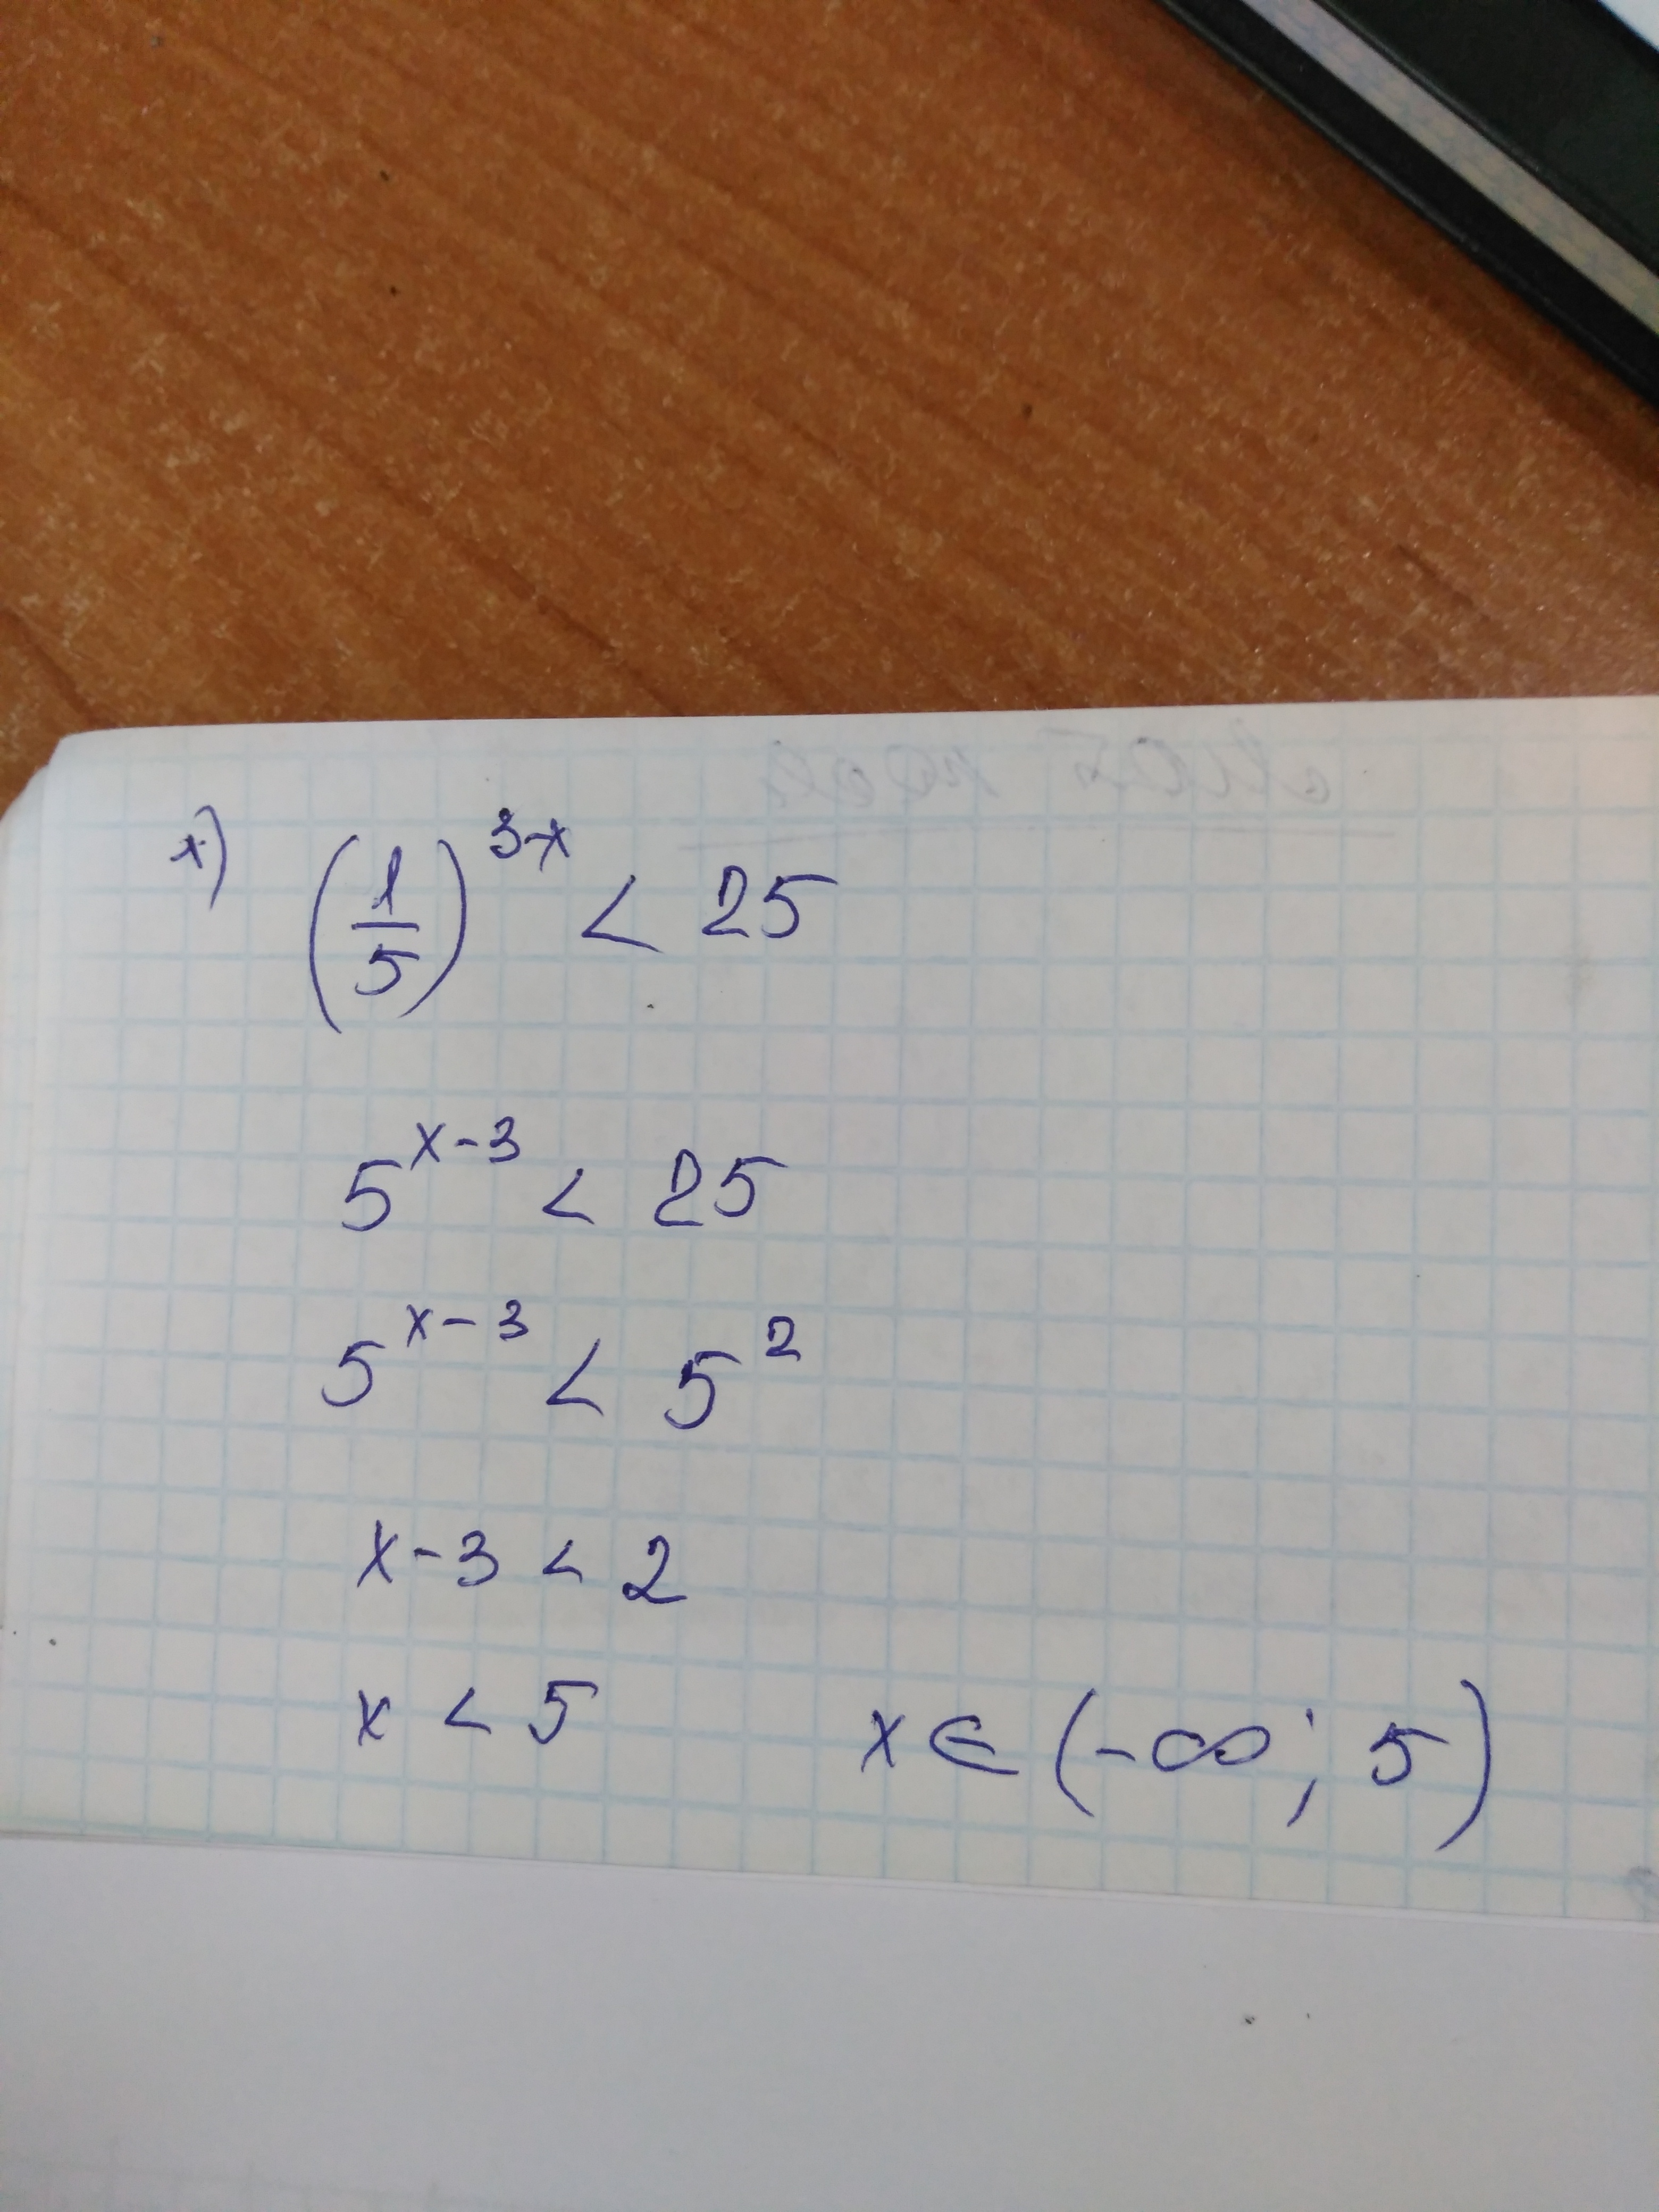 x) (1/5)^(3-x) < 25
5^(x-3) < 25
5^(x-3) < 5^2
x-3 < 2
x < 5 x∈(-∞; 5)